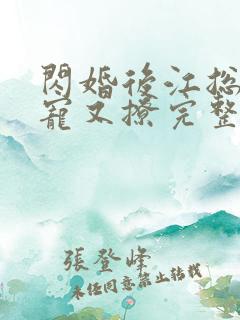 閃婚後江总
寵又撩完整
張登峰
未经同意禁止转载